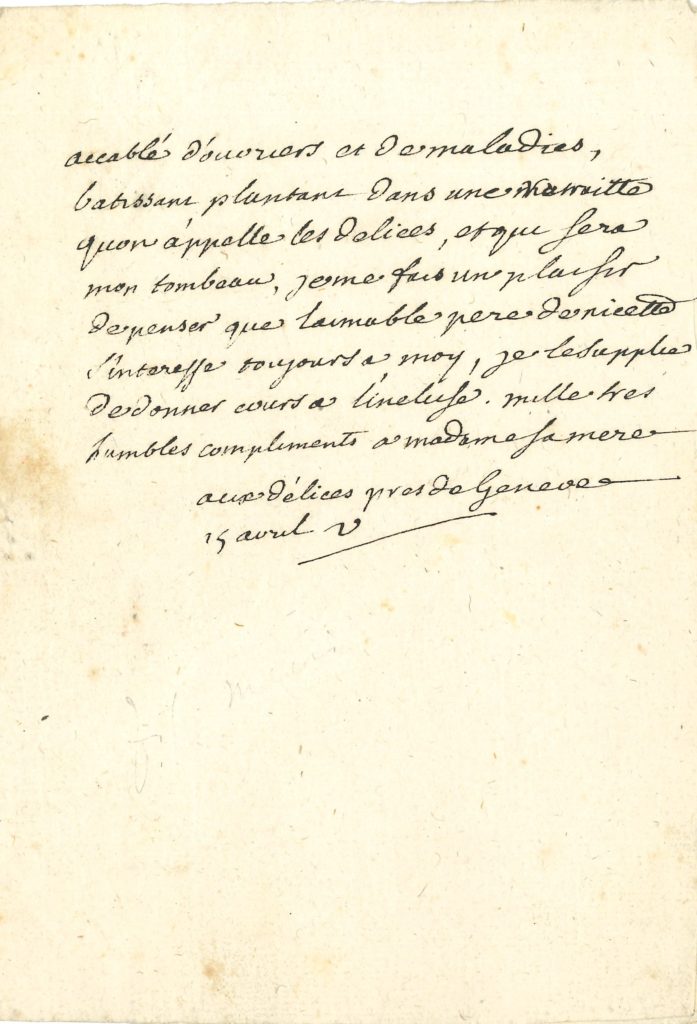 accablé d'ouvriers et de maladies,
batissant plantant dans une retraitte
quon appelle les delices, et qui sera
mon tombeau, je me fais un plaisir
de penser que laimable pere de nicette
s'interesse toujours a moy, je le supplie
de donner cours a l'incluse. mille tres
humbles compliments a madame sa mere
aux délices pres de Geneve
15 avril V